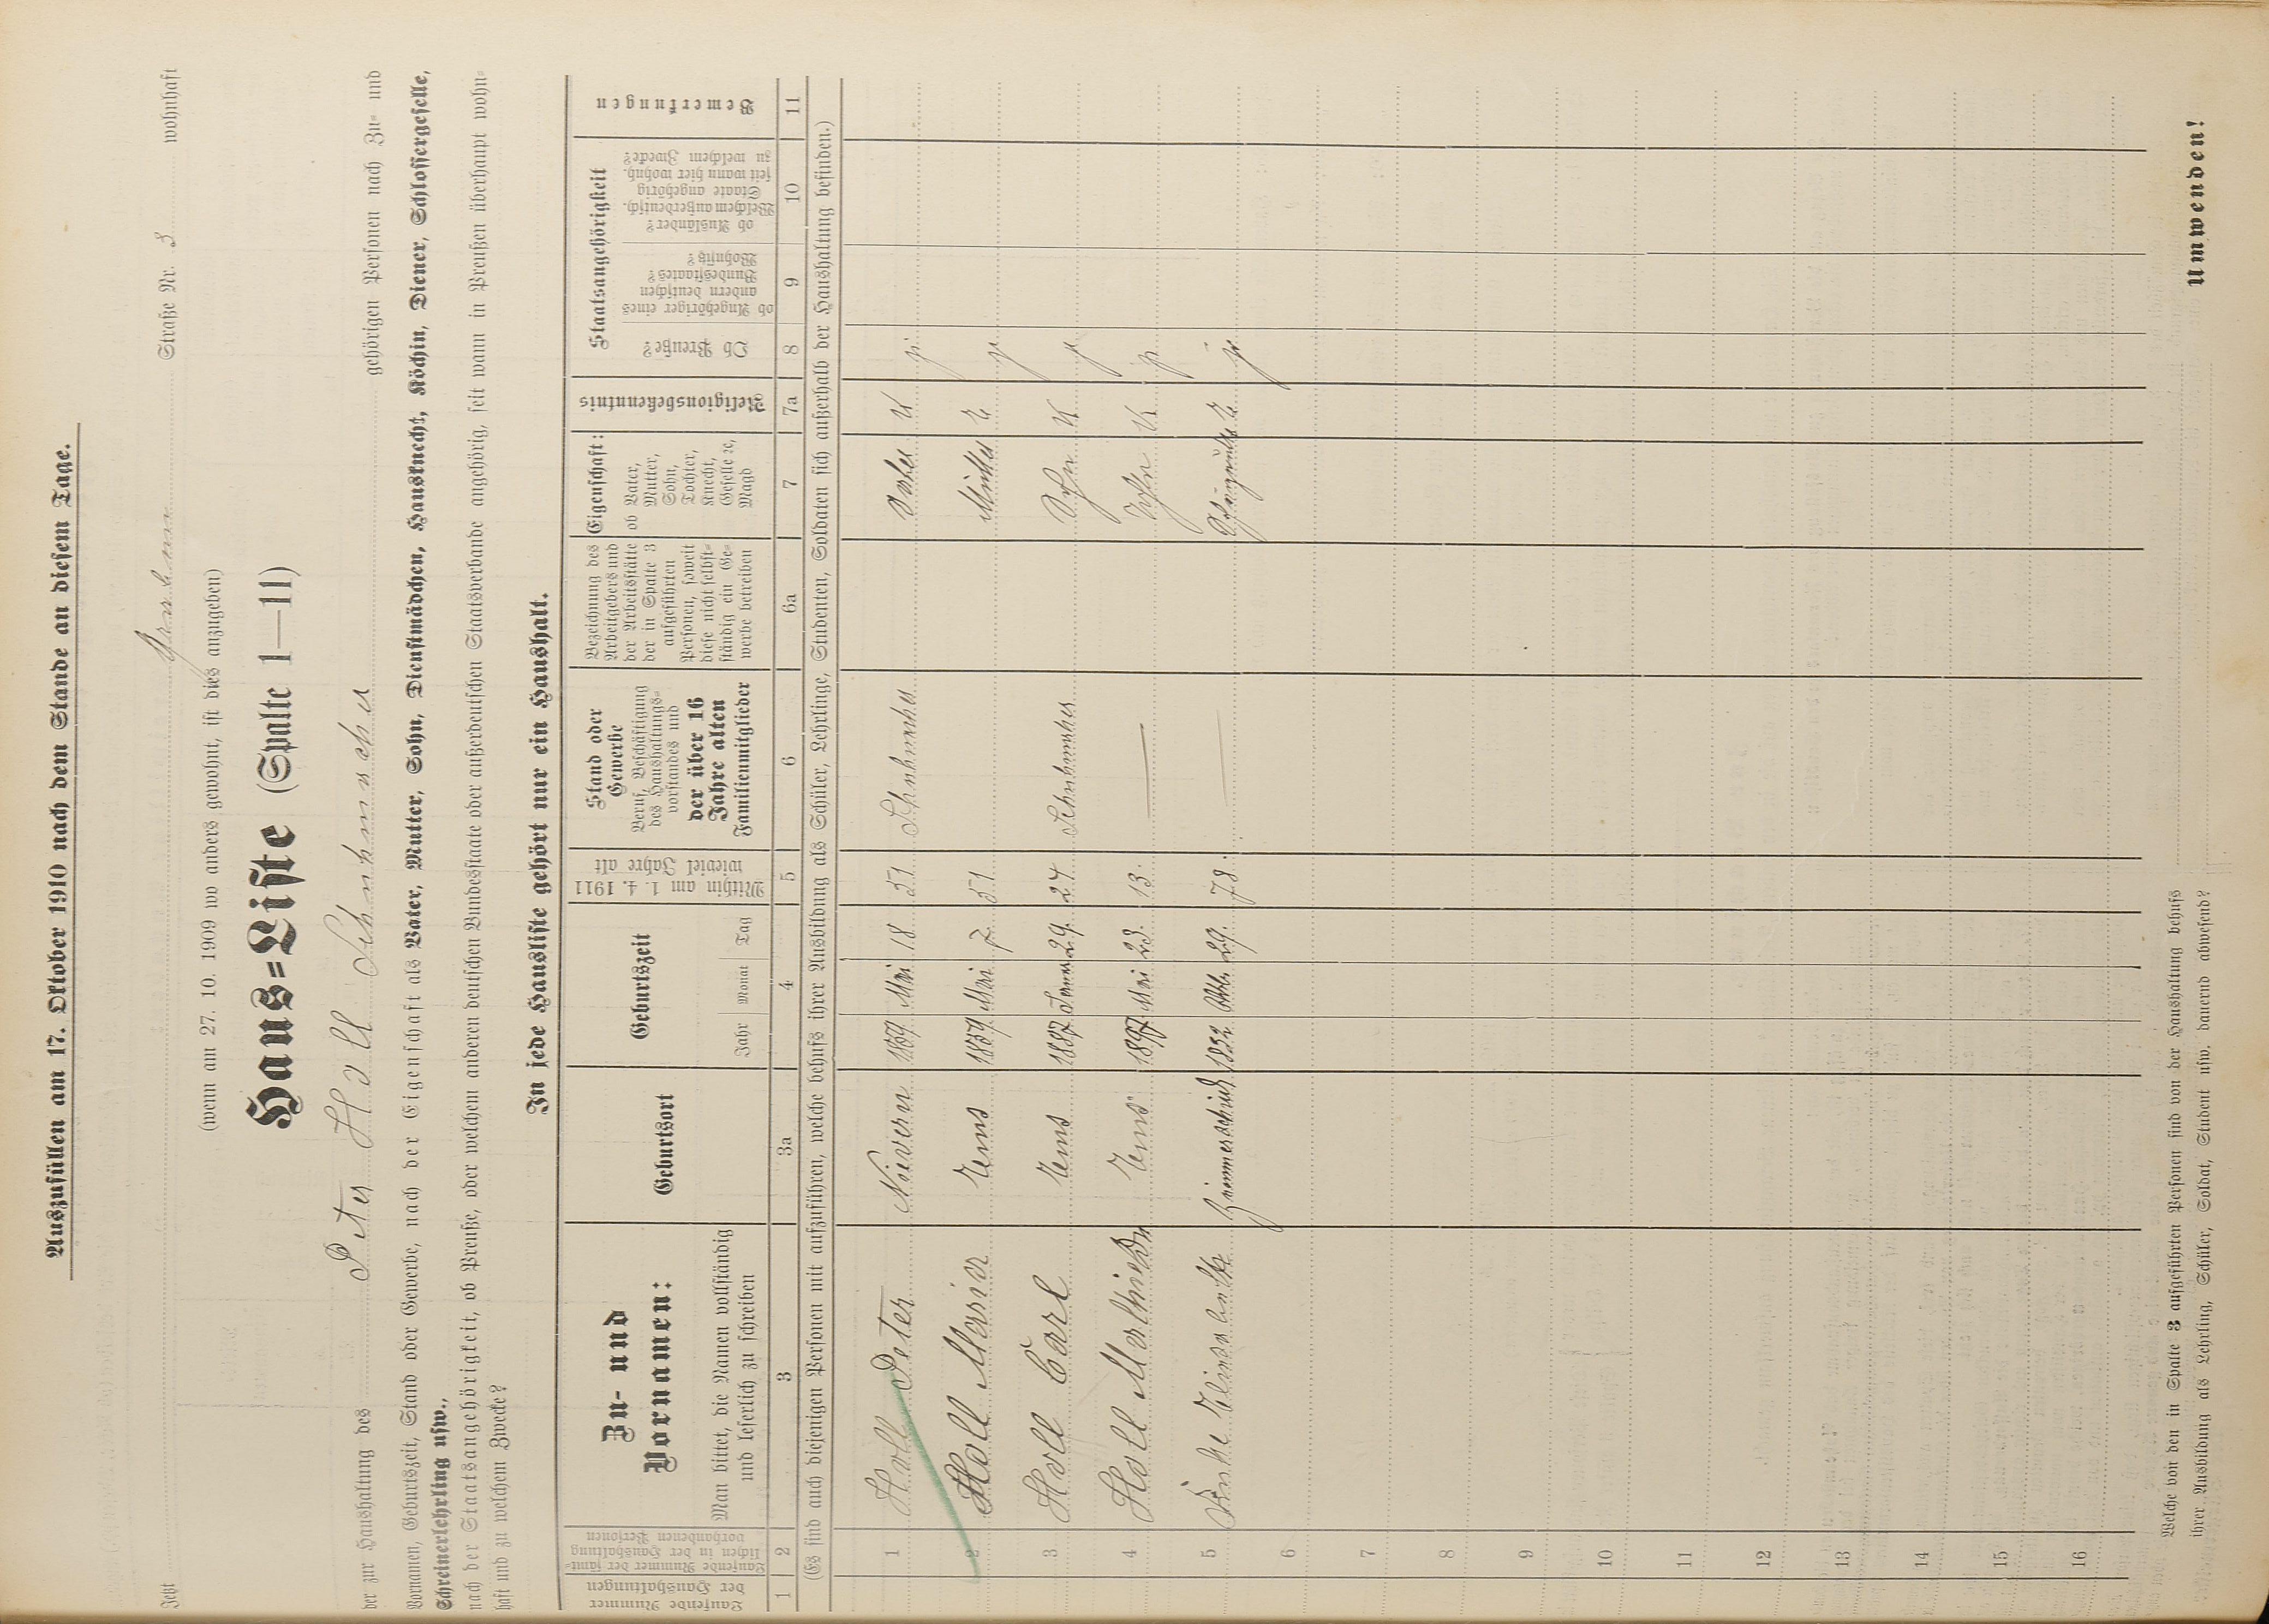 Auszufüllen am 17. Oktober 1910 nach dem Stande an diesem Tage.
Jetzt Straße Nr. 3 wohnhaft
(wenn am 27. 10. 1909 wo anders gewohnt, ist dies anzugeben)
Haus=Liste (Spalte 1—11)
der zur Haushaltung des Peter Holl Schuhmacher gehörigen Personen nach Zu- und
Vornamen, Geburtszeit, Stand oder Gewerbe, nach der Eigenschaft als Vater, Mutter, Sohn, Dienstmädchen, Hausknecht, Köchin, Diener, Schlossergeselle,
Schreinerlehrling usw.,
nach der Staatsangehörigkeit, ob Preuße, oder welchem anderen deutschen Bundesstaate oder außerdeutschen Staatsverbande angehörig, seit wann in Preußen überhaupt wohn-
haft und zu welchem Zwecke?
In jede Hausliste gehört nur ein Haushalt.
Laufende Nummer der Haushaltungen
Laufende Nummer der sämt-
lichen in der Haushaltung
vorhandenen Personen
Zu- und
Vornamen:
Man bittet, die Namen vollständig
und leserlich zu schreiben
Geburtsort
Geburtszeit
Jahr Monat Tag
Mithin am 1. 4. 1911
wieviel Jahre alt
Stand oder
Gewerbe
Beruf, Beschäftigung
des Haushaltungs-
vorstandes und
der über 16
Jahre alten
Familienmitglieder
Bezeichnung des
Arbeitgebers und
der Arbeitsstätte
der in Spalte 3
aufgeführten
Personen, soweit
diese nicht selbst-
ständig ein Ge-
werbe betreiben
Eigenschaft:
ob Vater,
Mutter,
Sohn,
Tochter,
Knecht,
Geselle ec,
Magd
Religionsbekenntnis
Staatsangehörigkeit
Ob Preuße?
ob Angehöriger eines
andern deutschen
Bundesstaates?
Wohnsitz?
ob Ausländer?
Welchem außerdeutsch.
Staate angehörig
seit wann hier wohnh.
zu welchem Zwecke?
Bemerkungen
1 2 3 3a 4 5 6 6a 7 7a 8 9 10 11
(Es sind auch diejenigen Personen mit aufzuführen, welche behufs ihrer Ausbildung als Schüler, Lehrlinge, Studenten, Soldaten sich außerhalb der Haushaltung befinden.)
1 Holl Peter Nievern 1859 Mai 18 51 Schuhmacher Vater K
2 Holl Maria Ems 1859 Mai 7. 51 Mutter E
3 Holl Carl Ems 1887 29. 24 Schuhmacher Sohn K
4 Holl Ems 1897 Mai 23. 13. — Sohn K
5 1832 29. 78. — E.
6
7
8
9
10
11
12
13
14
15
16
Welche von den in Spalte 3 aufgeführten Personen sind von der Haushaltung behufs
ihrer Ausbildung als Lehrling, Schüler, Soldat, Student usw. dauernd abwesend?
Umwenden!